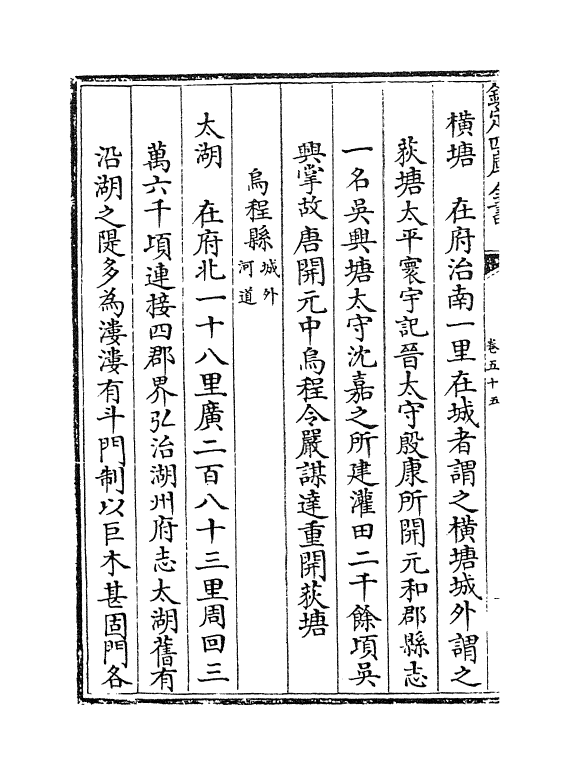 欽定四庫全書
卷五十五
橫塘　在府治南一里在城者謂之橫塘城外謂之
荻塘太平寰宇記晉太守殷康所開元和郡縣志
一名吳興塘太守沈嘉之所建灌田二千餘頃吳
興掌故唐開元中烏程令嚴謀達重開荻塘
烏程縣城外河道
太湖　在府北一十八里廣二百八十三里周回三
萬六千頃連接四郡界弘治湖州府志太湖舊有
沿湖之隄多為漊漊有斗門制以巨木甚固門各